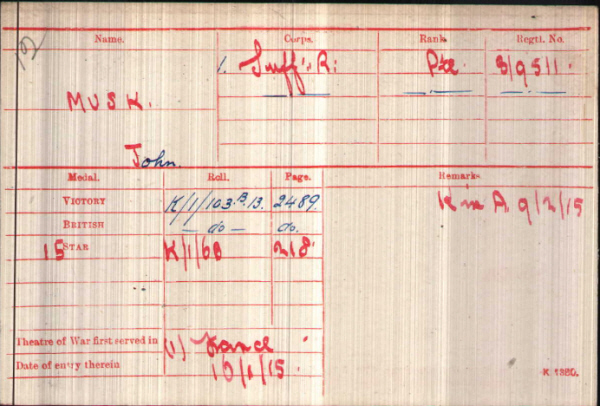 12
Name. Corps. Rank. Regtl. No.
1. Suff: R: Pte. 3/9511.
MUSK.
John.
Medal. Roll. Page. Remarks.
VICTORY K/1/103.B.13. 2489. K in A. 9/2/15
BRITISH — do — do.
15 STAR K/1/60 218.
Theatre of War first served in (1) France
Date of entry therein 10/1/15.
K 1380.